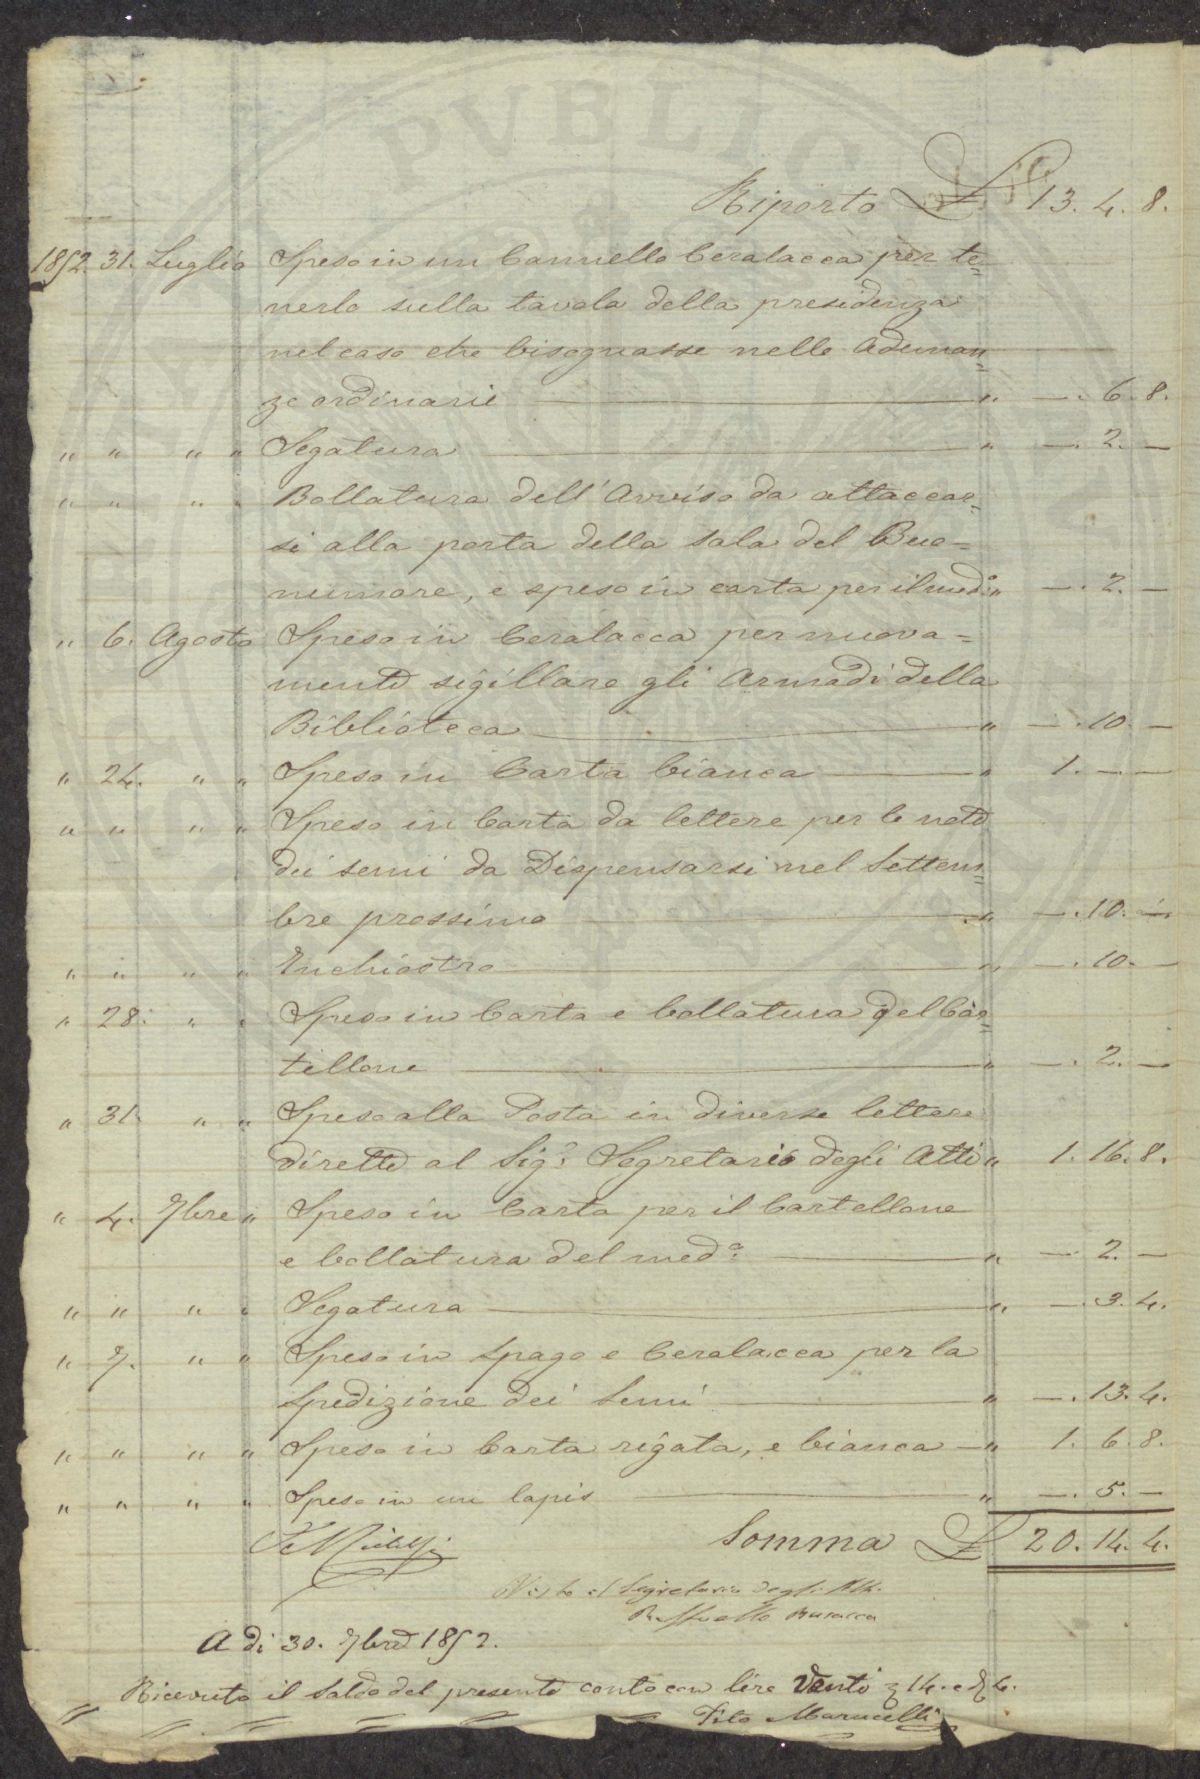 PVBLIC
Riporto £ 13. 4. 8.
1852. 31. Luglio Speso in un Cannello Ceralacca per te=
nerlo sulla tavola della presidenza
nel caso che bisognasse nelle Adunan=
ze ordinarie " —. 6. 8.
" " " " Segatura " —. 2. —
" " " " Bollatura dell'Avviso da attaccar=
si alla porta della sala del Buo=
numore, e speso in carta per il med.º " —. 2. —
" 6. Agosto Speso in Ceralacca per nuova=
mente sigillare gli Armadi della
Biblioteca " —. 10. —
" 24. " " Speso in Carta bianca " 1. — —
" " " " Speso in Carta da lettere per le note
dei semi da Dispensarsi nel Settem=
bre prossimo " —. 10. —
" " " " Inchiostro " —. 10. —
" 28. " " Speso in Carta e bollatura del Car=
tellone " —. 2. —
" 31. " " Speso alla Posta in diverse lettere
dirette al Sig.r Segretario degli Atti " 1. 16. 8.
" 4. 7bre " Speso in Carta per il Cartellone
e bollatura del med.º " — 2. —
" " " " Segatura " —. 3. 4.
" 7. " " Speso in Spago e Ceralacca per la
spedizione dei Semi " —. 13. 4.
" " " " Speso in Carta rigata, e bianca " 1. 6. 8.
" " " " Speso in un lapis " —. 5. —
Somma £ 20. 14. 4.
Visto il Segretario degli Atti
Raffaello Busacca
A di 30. 7bre 1852.
Ricevuto il Saldo del presente conto con lire Venti 14. e 4.
Tito Marucelli